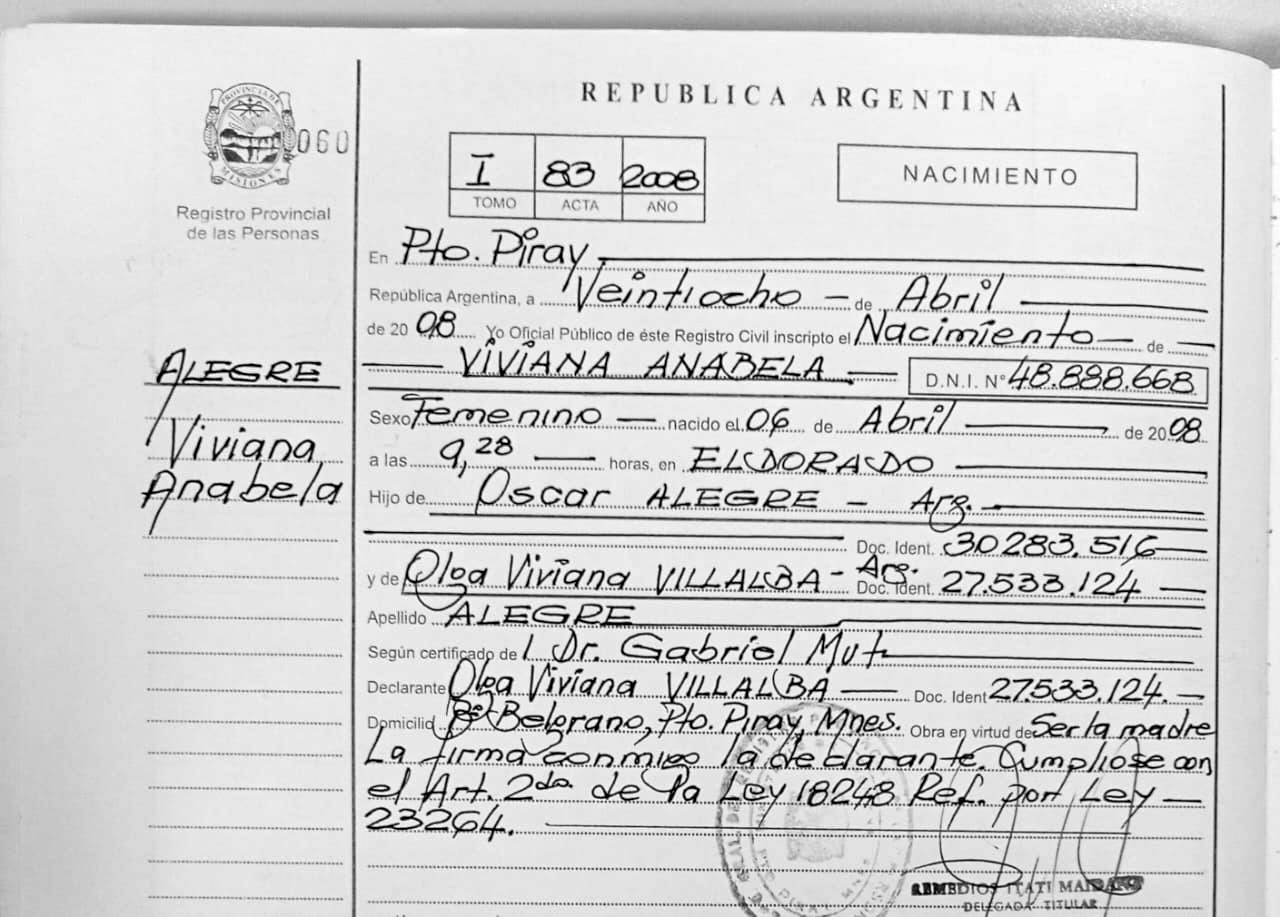 REPUBLICA ARGENTINA
PROVINCIA DE MISIONES
060
Registro Provincial
de las Personas
I 83 2008
TOMO ACTA AÑO
NACIMIENTO
En Pto. Piray
República Argentina, a Veintiocho de Abril
de 2008 Yo Oficial Público de éste Registro Civil inscripto el Nacimiento de
VIVIANA ANABELA D.N.I. N° 48.888.668
ALEGRE
Viviana
Anabela
Sexo Femenino nacido el 06 de Abril de 2008
a las 9,28 horas, en ELDORADO
Hijo de Oscar ALEGRE - Arg.
Doc. Ident. 30283.516
y de Olga Viviana VILLALBA - Arg. Doc. Ident. 27.533.124
Apellido ALEGRE
Según certificado de Dr. Gabriel Mut
Declarante Olga Viviana VILLALBA Doc. Ident 27.533.124.
Domicilio Bº Belgrano, Pto. Piray, Mnes. Obra en virtud de Ser la madre
La firma conmigo la declarante. Cumpliose con
el Art. 2do. de la Ley 18248 Ref. por Ley
23264.
REMEDIOS ITATI
DELEGADA TITULAR